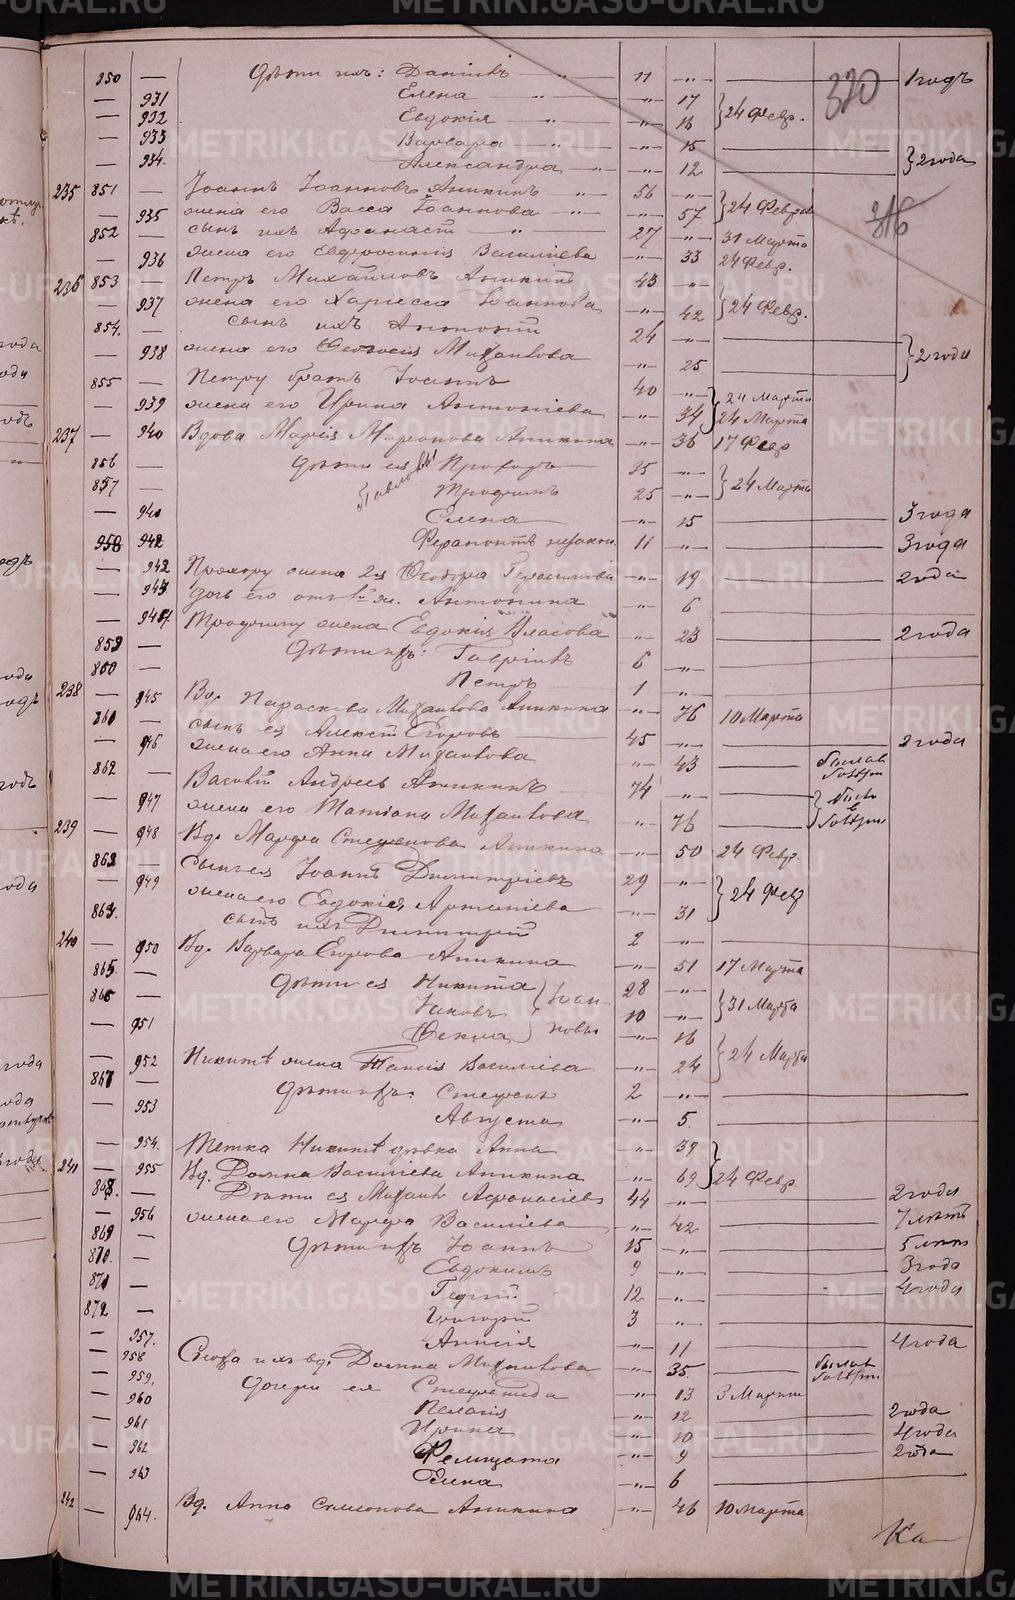 850 — Дѣти ихъ: Даніилъ —"— 11 —"— 1 годъ
— 931 Елена —"— —"— 17 } 24 Февр.
— 932 Евдокія —"— —"— 16
— 933 Варвара —"— 15
— 934. Александра —"— —"— 12 } 2 года
320
235 851 — Іоаннъ Іоанновъ Аникинъ —"— 56 —"— } 24 Февраля
— 935 жена его Васса Іоаннова —"— —"— 57
316
852 — сынъ ихъ Афанасій —"— 27 —"— 31 Марта
— 936 жена его Евфросинія Василіева —"— 33 24 Февр.
236 853 — Петръ Михайловъ Аникинъ 43 —"— } 24 Февр.
— 937 жена его Харисса Іоаннова —"— 42
854. — сынъ ихъ Антоній 24 —"— } 2 года
— 938 жена его Михайлова —"— 25
855 — Петру братъ Іоаннъ 40 —"— } Марта
— 939 жена его Ирина Антоніева —"— 34 24 Марта
237 — 940 Вдова Марія Миронова Аникина —"— 36 17 Февр
856 — дѣти ея Павловы Прохоръ 35 —"— } 24 Марта
857 — Трофимъ 25 —"—
— 941 Елена —"— 15 3 года
958 942 Ферапонтъ незакон. 11 —"— 3 года
— 942 Прохору жена 2я Ѳеодора Герасимова —"— 19 2 года
— 943 дочь его отъ 1й ж. Антонина —"— 6
— 944. Трофиму жена Евдокія Власова —"— 23 2 года
859 — Дѣти ихъ: Гавріилъ 6 —"—
860 — Петръ 1 —"—
238 — 945 Вд. Параскева Михайлова Аникина —"— 76 10 Марта
861 — сынъ ея Алексѣй Егоровъ 45 —"— 2 года
— 946 жена его Анна Михайлова —"— 43
862 — Василій Андреевъ Аникинъ 74 —"—
— 947 жена его Татіана Михайлова —"— 76
239 — 948 Вд. Марфа Стефанова Аникина —"— 50 24 Февр.
863 — сынъ ея Іоаннъ Димитріевъ 29 —"— } 24 Февр
— 949 жена его Евдокія Артеміева —"— 31
864. — сынъ ихъ Димитрій 2 —"—
240 — 950 Вд. Варвара Егорова Аникина —"— 51 17 Марта
865 — Дѣти ея Никита } Іоанновы 28 —"— } 31 Марта
866 — Іаковъ 10 —"—
— 951 Ѳекла —"— 16 } 24 Марта
— 952 Никитѣ жена Таисія Василіева —"— 24
867 — Дѣти ихъ. Стефанъ 2 —"—
— 953 Августа —"— 5.
— 954. Тетка Никитѣ дѣвка Анна —"— 39 } 24 Февр.
241 — 955 Вд. Домна Василіева Аникина —"— 69
868. — Дѣти ея Михаилъ Афанасіевъ 44 —"— 2 года
— 956 жена его Марфа Василіева —"— 42 7 лѣтъ
869 — Дѣти ихъ Іоаннъ 15 —"— 5 лѣтъ
870. — Евдокимъ 9 —"— 3 года
871 — Георгій 12 —"— 4 года
872 — Григорій 3 —"—
— 957. Анисія —"— 11 4 года
— 958 Сноха ихъ вд. Домна Михайлова —"— 35
— 959. дочери ея Стефанида —"— 13 3 Марта
— 960 Пелагія —"— 12 2 года
— 961 Ирина —"— 10 4 года
— 962 Фелицата —"— 9 2 года
— 963 Елена —"— 6
242 — 964. Вд. Анна Симеонова Аникина —"— 46 10 Марта
Ка—
METRIKI.GASO-URAL.RU